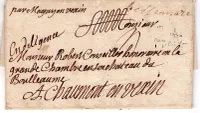 par Magny en vexin
Monsieur
En diligence
Monsieur Robert Conseiller honoraire en la
grande Chambre en son chateau de
Boilleaume
A Chaumont en vexin